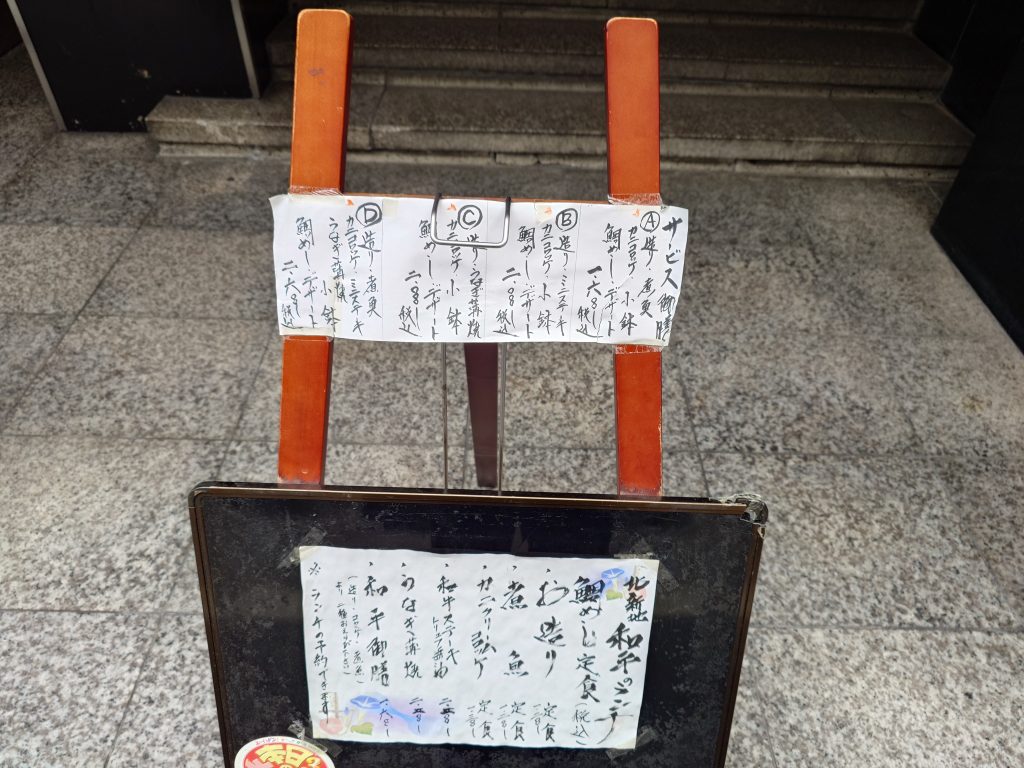 サービス御膳
Ⓐ造り・煮魚
カニコロッケ・小鉢
鯛めし・デザート
一六〇〇 税込
Ⓑ造り・ミニステーキ
カニコロッケ・小鉢
鯛めし・デザート
二、〇〇〇 税込
Ⓒ造り・うなぎ蒲焼
カニコロッケ・小鉢
鯛めし・デザート
二、〇〇〇 税込
Ⓓ造り・煮魚
カニコロッケ・ミニステーキ
うなぎ蒲焼・小鉢
鯛めし・デザート
二、六〇〇 税込
北新地 和平のランチ
鯛めし定食(税込)
・お造り 定食
・煮魚 定食
・カニクリームコロッケ 定食
・和牛ステーキ
トリュフ醤油
・うなぎ蒲焼
・和平御膳
(造り・コロッケ・煮魚
より二種お選び下さい)
※ランチの予約できます